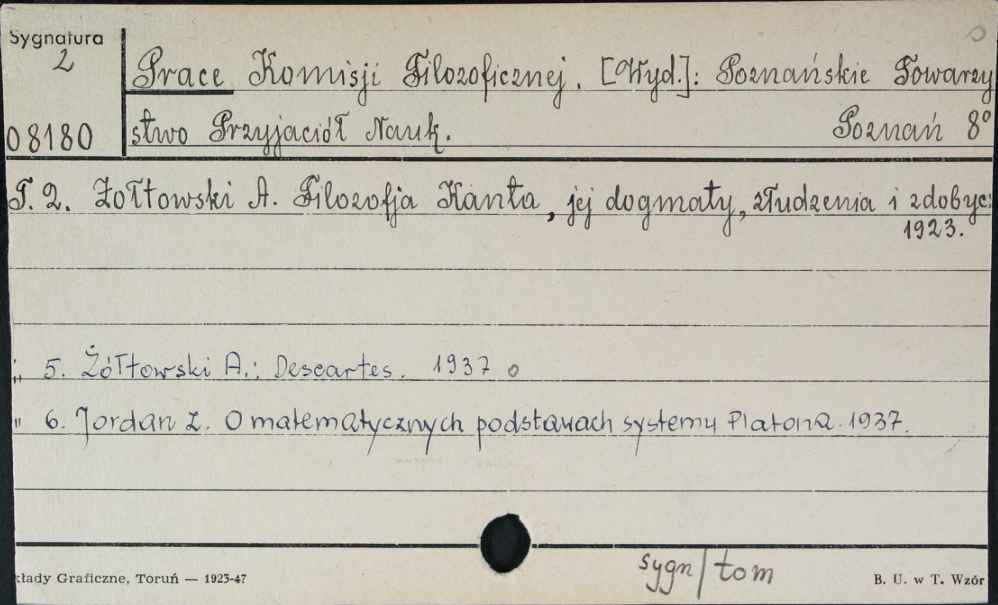 Sygnatura
2
Prace Komisji Filozoficznej. [Wyd.]: Poznańskie Towarzy
08180 stwo Przyjaciół Nauk. Poznań 8°
T. 2. Żołtowski A. Filozofja Kanta, jej dogmaty, złudzenia i zdobycz
1923.
" 5. Żółtowski A.: Descartes. 1937 o
" 6. Jordan Z. O matematycznych podstawach systemu Platona. 1937.
sygn/tom
kłady Graficzne, Toruń — 1923-47 B. U. w T. Wzór